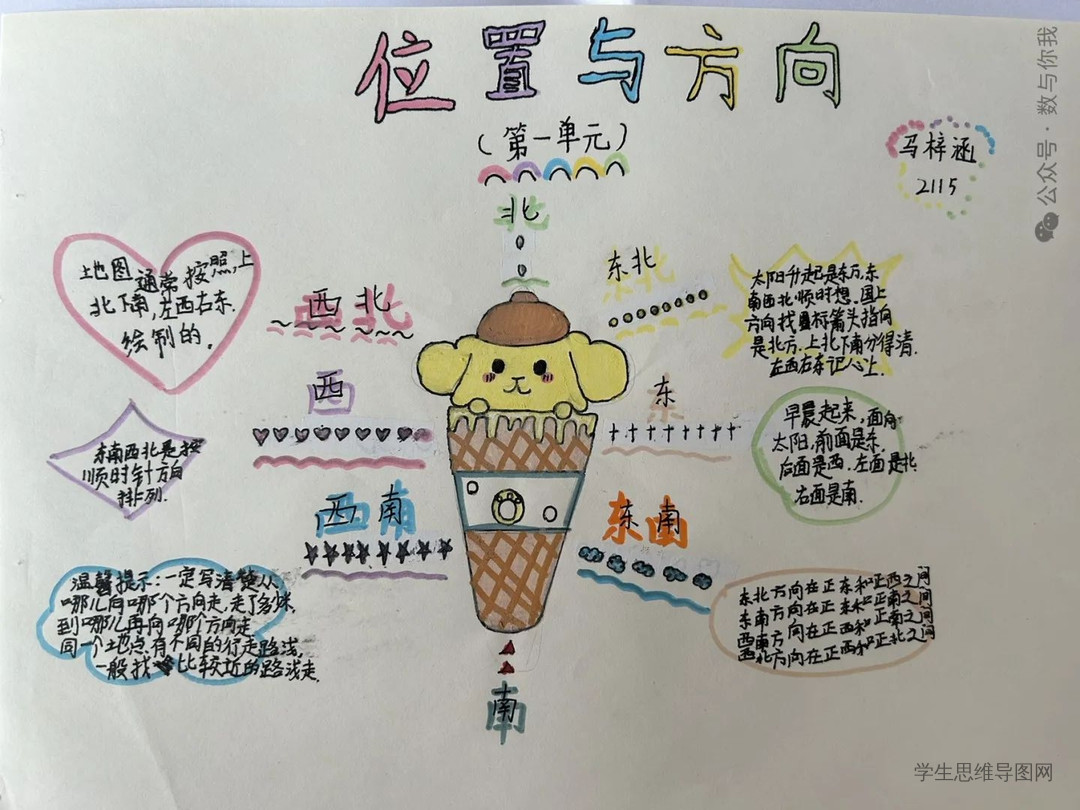 位置与方向
(第一单元)
马梓涵
2115
公众号·数与你我
北
西北
东北
西
东
西南
东南
南
地图通常按照,上
北下南,左西右东.
绘制的。
东南西北是按
顺时针方向
排列.
温馨提示:一定写清楚从
哪儿向哪个方向走,走了多少米,
到哪儿再向哪个方向走
同一个地点,有不同的行走路线,
一般找比较近的路线走.
太阳升起是东方,东
南西北顺时想.图上
方向找置标箭头指向
是北方.上北下南分得清.
左西右东记心上.
早晨起来,面向
太阳,前面是东.
后面是西.左面是北
右面是南.
东北方向在正东和正西之间
东南方向在正东和正南之间
西南方向在正西和正南之间
西北方向在正西和正北之间
学生思维导图网